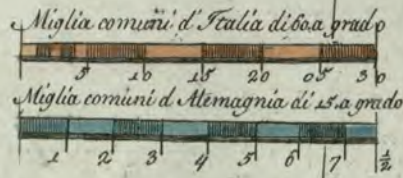 Miglia comuni d'Italia di 60. a grado
5 10 15 20 05 30
Miglia comuni d Alemagnia di 15. a grado
1 2 3 4 5 6 7 ½